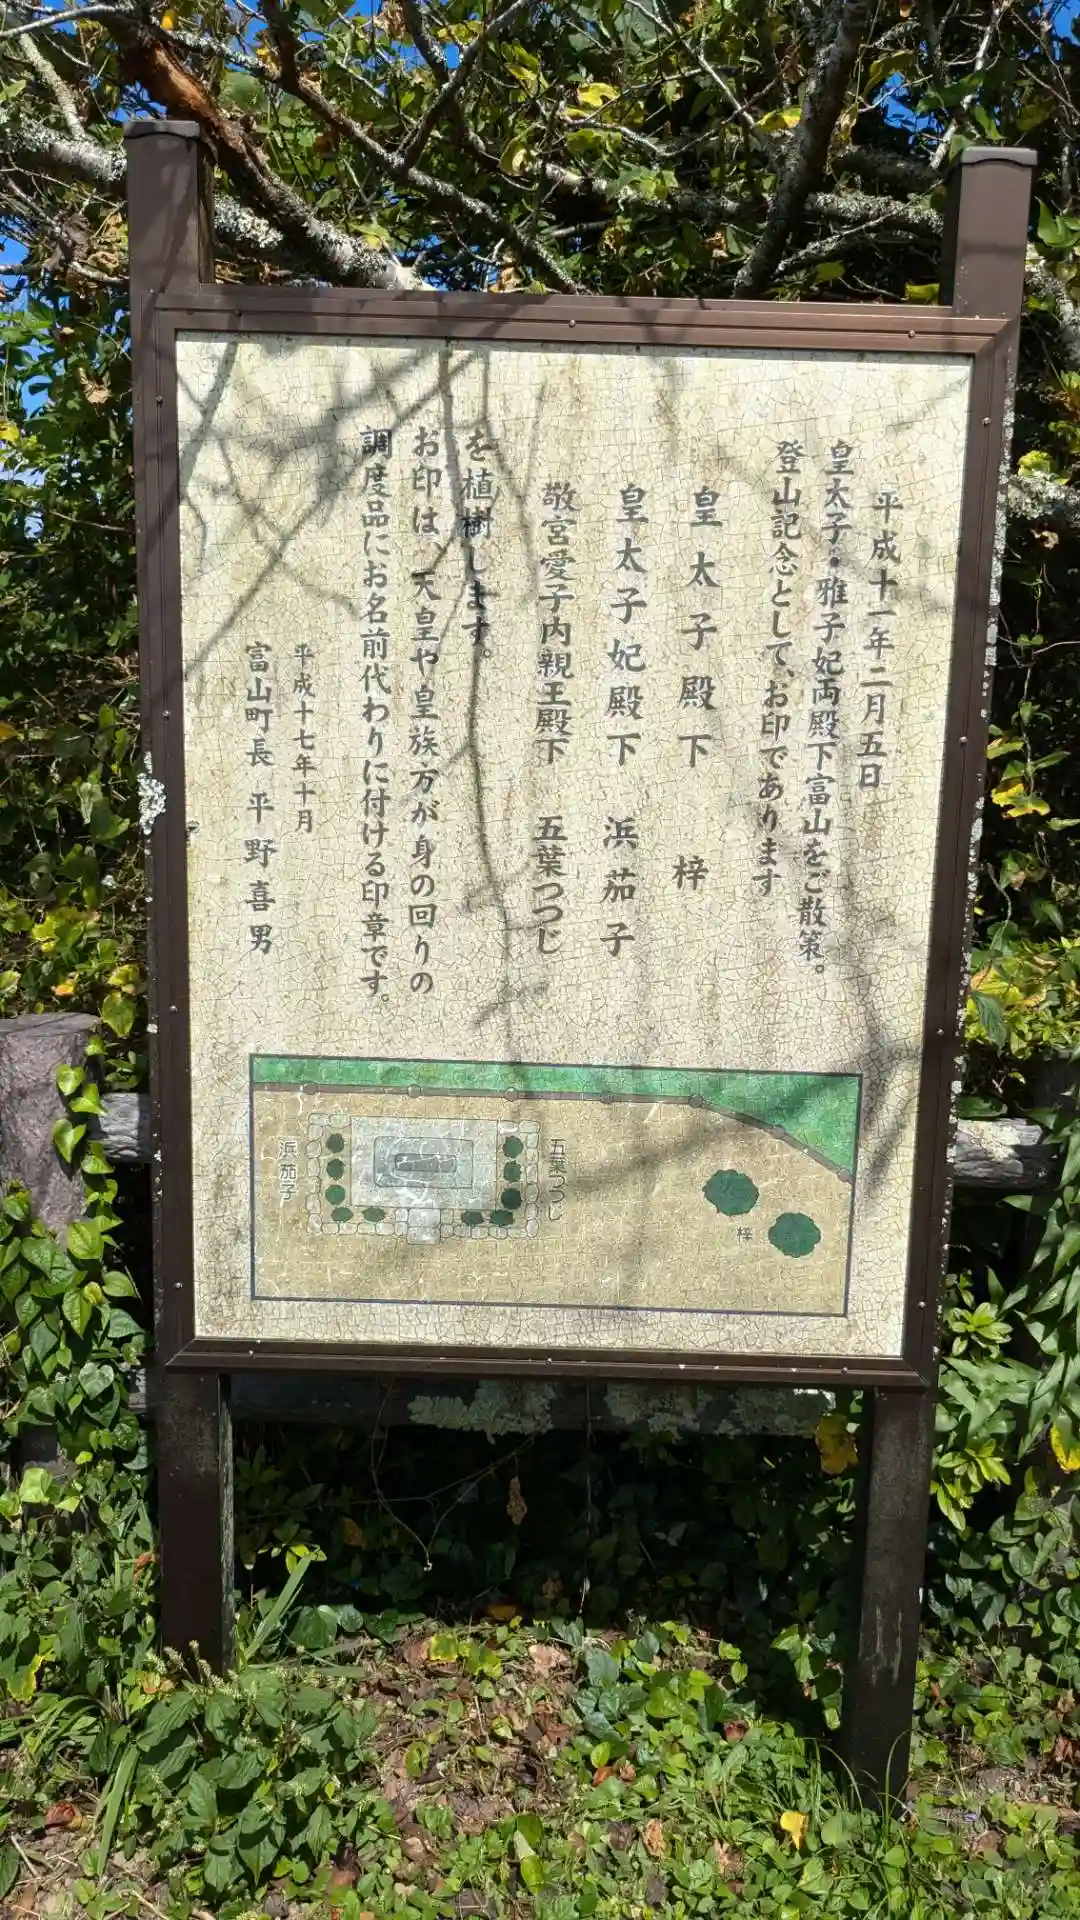 平成十一年二月五日
皇太子・雅子妃両殿下富山をご散策。
登山記念として、お印であります
皇太子殿下 梓
皇太子妃殿下 浜茄子
敬宮愛子内親王殿下 五葉つつじ
を植樹します。
お印は、天皇や皇族方が身の回りの
調度品にお名前代わりに付ける印章です。
平成十七年十月
富山町長 平野喜男
浜茄子
五葉つつじ
梓